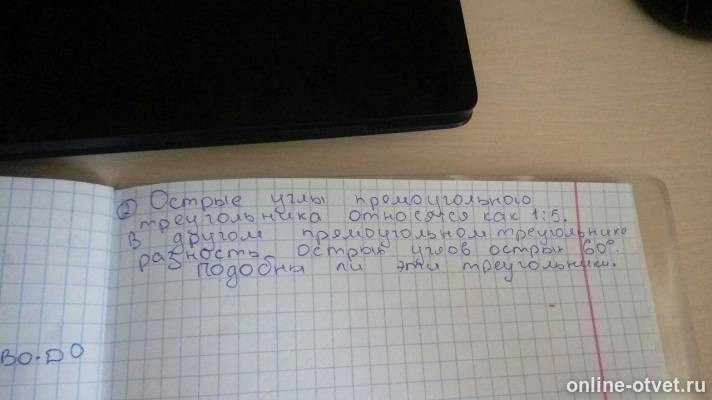 ② Острые углы прямоугольного
треугольника относятся как 1:5.
В другом прямоугольном треугольнике
разность острых углов острых 60°.
Подобны ли эти треугольники.
ВО·DО
online-otvet.ru